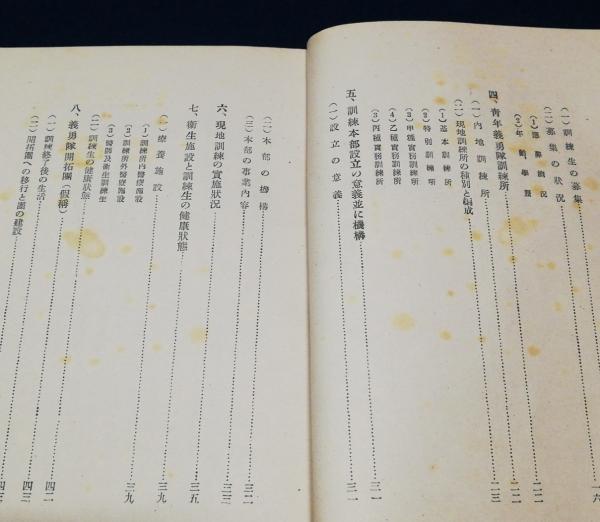 (一) 訓練生の募集……一六
(二) 募集の狀況……一二
(1) 應募狀況……一二
(2) 年齡、學歷……一二
四、靑年義勇隊訓練所……一三
(一) 內地訓練所
(二) 現地訓練所の種別と編成
(1) 基本訓練所
(2) 特別訓練所
(3) 甲種實務訓練所
(4) 乙種實務訓練所
(5) 丙種實務訓練所……三一
五、訓練本部設立の意義並に機構
(一) 設立の意義……三一
(二) 本部の機構……三二
(三) 本部の事業內容……三三
六、現地訓練の實施狀況……三三
七、衞生施設と訓練生の健康狀態……三五
(一) 療養施設……三九
(1) 訓練所內醫療施設
(2) 訓練所外醫療施設
(3) 醫師及衞生訓練生
(二) 訓練生の健康狀態……三九
八、義勇隊開拓團(假稱)
(一) 訓練終了後の生活……四二
(二) 開拓團への移行と團の建設……四三